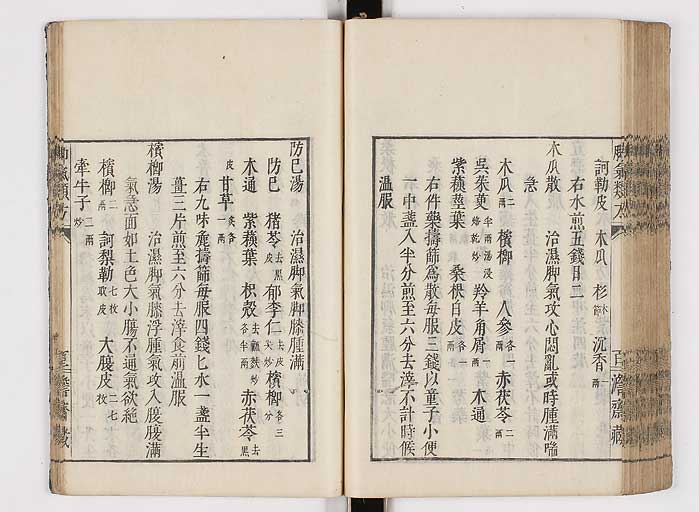 訶勒皮 木瓜 杉節 沉香一兩
右水煎五錢日二
木瓜散 治濕脚氣攻心悶亂或時腫滿喘
急
木瓜二兩 檳榔 人參各一兩 赤茯苓二兩
吳茱萸半兩湯浸焙乾炒 羚羊角屑一兩 木通
紫蘓莖葉 桑根白皮各一兩
右件藥擣篩爲散每服三錢以童子小便
一中盞入半分煎至六分去滓不計時候
溫服
脚氣類方
防巳湯 治濕脚氣脚膝腫滿
防巳 猪苓去黑皮 郁李仁去皮尖炒 檳榔各三分
木通 紫蘓葉 枳殼去瓤麩炒各半兩 赤茯苓去黑皮
甘草炙各一兩
右九味麄擣篩每服四錢匕水一盞半生
薑三片煎至六分去滓食前溫服
檳榔湯 治濕脚氣膝浮腫氣攻入腹腹滿
氣急面如土色大小膓不通氣欲絶
檳榔二兩 訶梨勒七枚取皮 大腹皮二七枚
牽牛子二兩炒